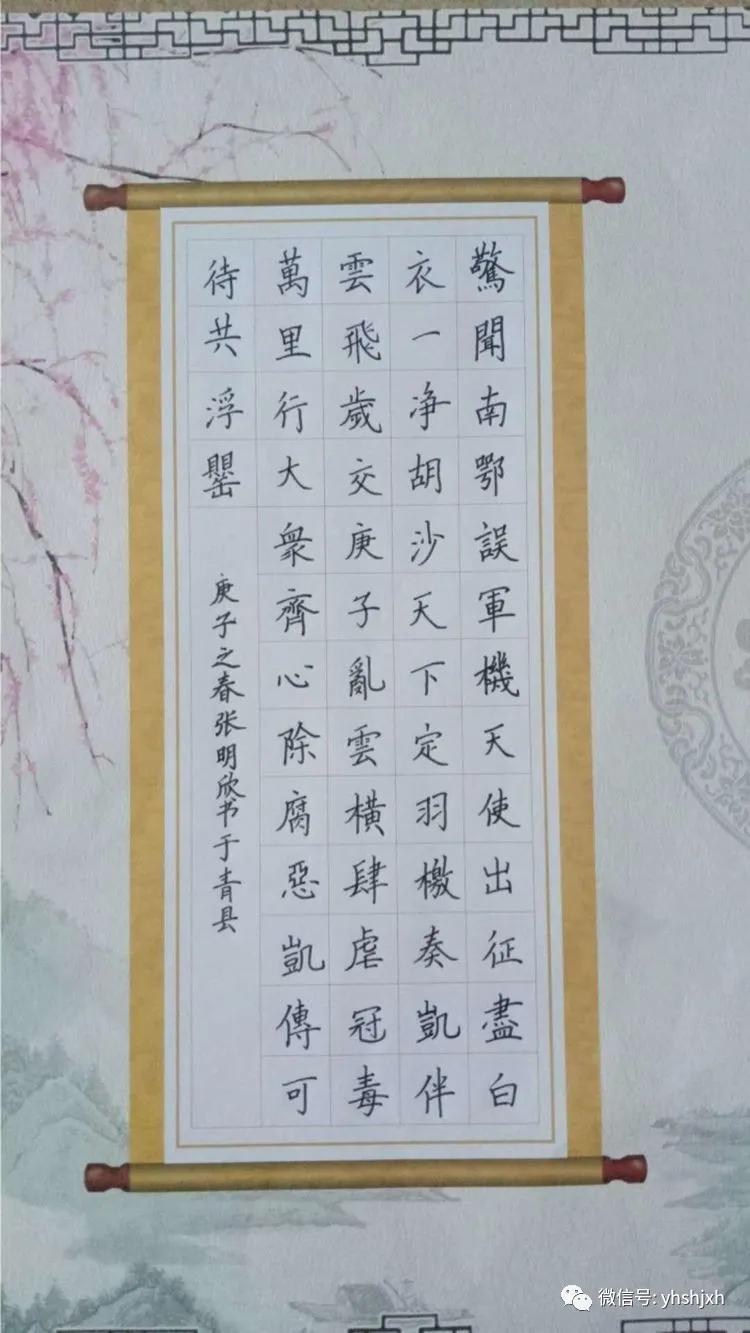 驚聞南鄂誤軍機天使出征盡白
衣一净胡沙天下定羽檄奏凱伴
雲飛歲交庚子亂雲横肆虐冠毒
萬里行大衆齊心除腐惡凱傳可
待共浮罌
庚子之春张明欣书于青县
微信号: yhshjxh